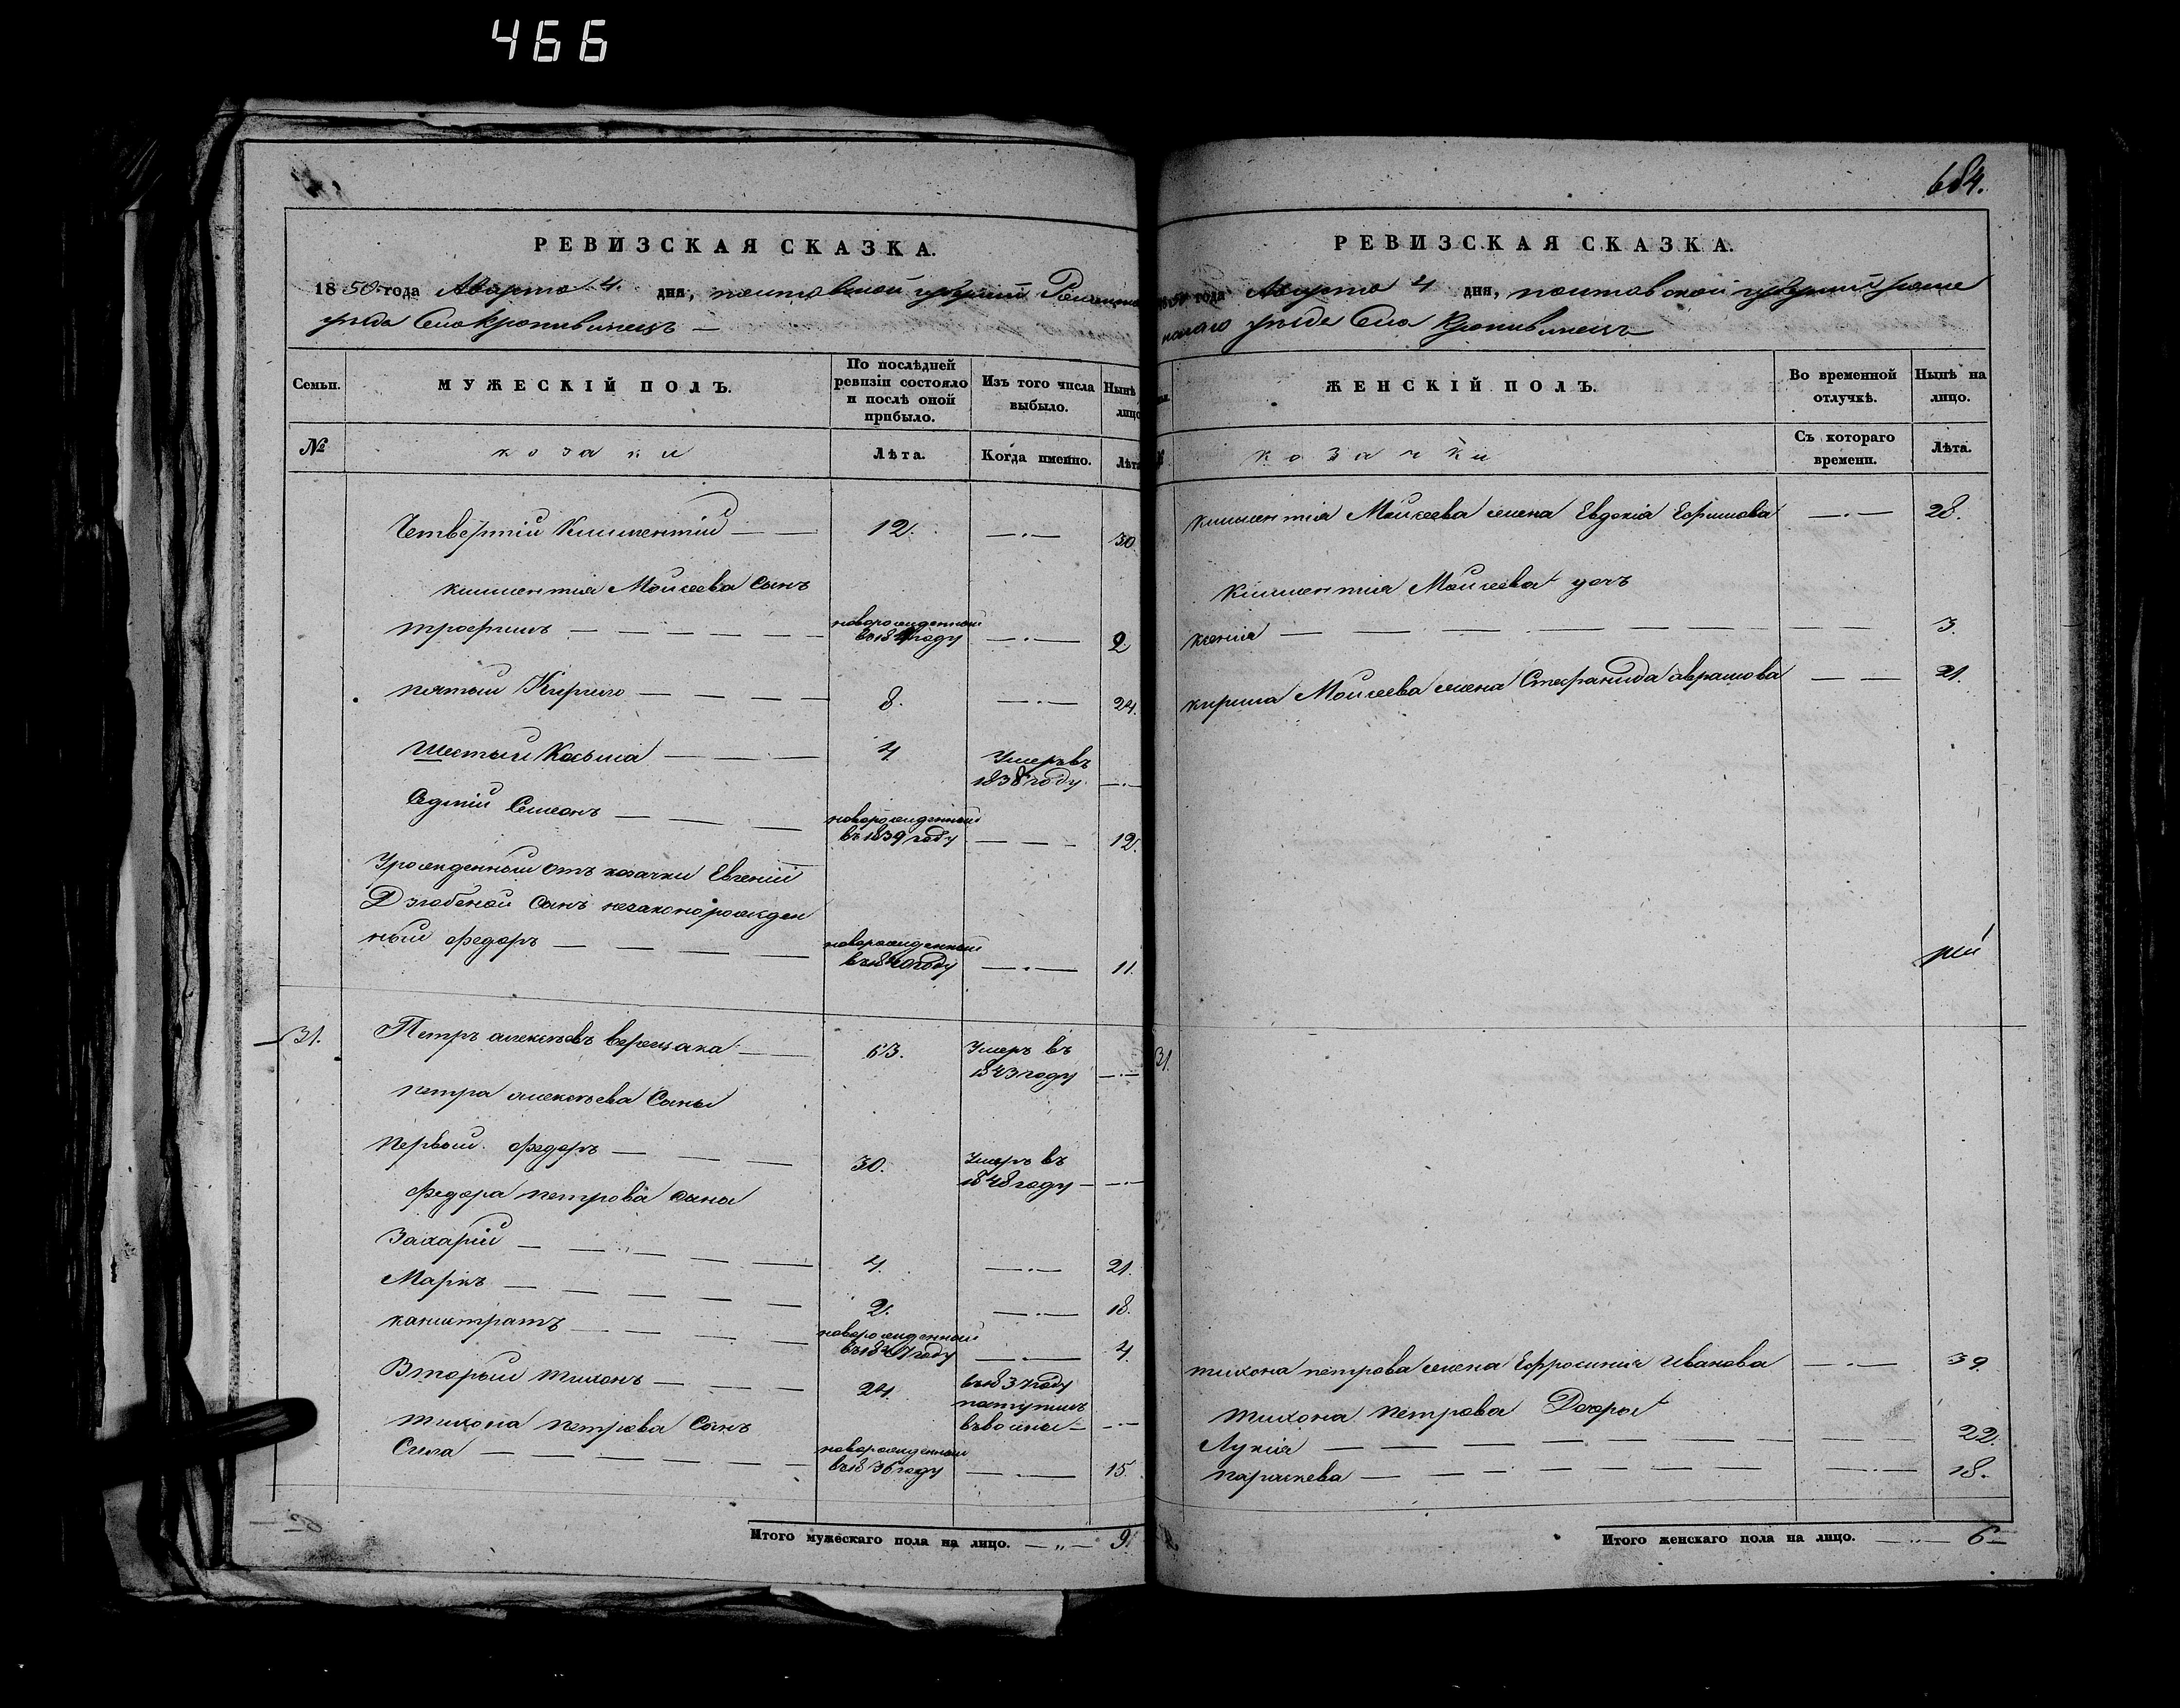 466
РЕВИЗСКАЯ СКАЗКА.
1850 года Августа 4 дня, полтавской губерніи Роменского
уѣзда Села Кропивинецъ —
Семьи.
МУЖЕСКІЙ ПОЛЪ.
По послѣдней
ревизіи состояло
и послѣ оной
прибыло.
Изъ того числа
выбыло.
Нынѣ
лицо
№
козаки
Лѣта.
Когда именно.
Лѣта
Четвертій Климентій — — 12. —.— 30
климентія Моисеева Сынъ
трофимъ — — — — новорожденный
въ 184 году —.— 2
пятый Кирило — — — 8. —.— 24.
Шестый Козьма — — — 4 Умеръ въ
1838 году. —.—
Седмій Семенъ — — — новорожденный
въ 1839 году — — — 12.
Урожденный отъ козачки Евгеніи
Сынъ незаконорожден
ный федоръ — — — новорожденный
въ 1840 году —.— 11.
31. Петръ алексѣевъ верещака — 63. Умеръ въ
1843 году —.—
петра алексѣева Сыны
первый федоръ — — — 30. Умеръ въ
1848 году — —.—
федора петрова сыны
Захарій — — — — — 4. —.— 21.
Маркъ — — — — — 2. —.— 18.
калистратъ — — — — новорожденный
въ 1847 году —.— 4.
Вторый тихонъ — — — 24. въ 1837 году
поступилъ
—.—
тихона петрова Сынъ
Сила — — — — — новорожденный
въ 1836 году —.— 15.
Итого мужескаго пола на лицо. — „ — 9.
684.
РЕВИЗСКАЯ СКАЗКА.
1850 года Августа 4 дня, полтавской губерніи роме
нского уѣзда Села Кропивинецъ
ЖЕНСКІЙ ПОЛЪ.
Во временной
отлучкѣ.
Нынѣ на
лицо.
козачки
Съ котораго
времени.
Лѣта.
климентія Моисеева жена Евдокія Ефимова —.— 28.
Климентія Моисеева дочь
ксенія — — — — — — — 3.
кирила Моисеева жена Стефанида аврамова — — 21.
31.
тихона петрова жена Ефросинія Иванова —.— 39.
тихона петрова Дочери
Лукія — — — — — — — 22.
параскева — — — — — —.— 18.
Итого женскаго пола на лицо. — „ — 6 —